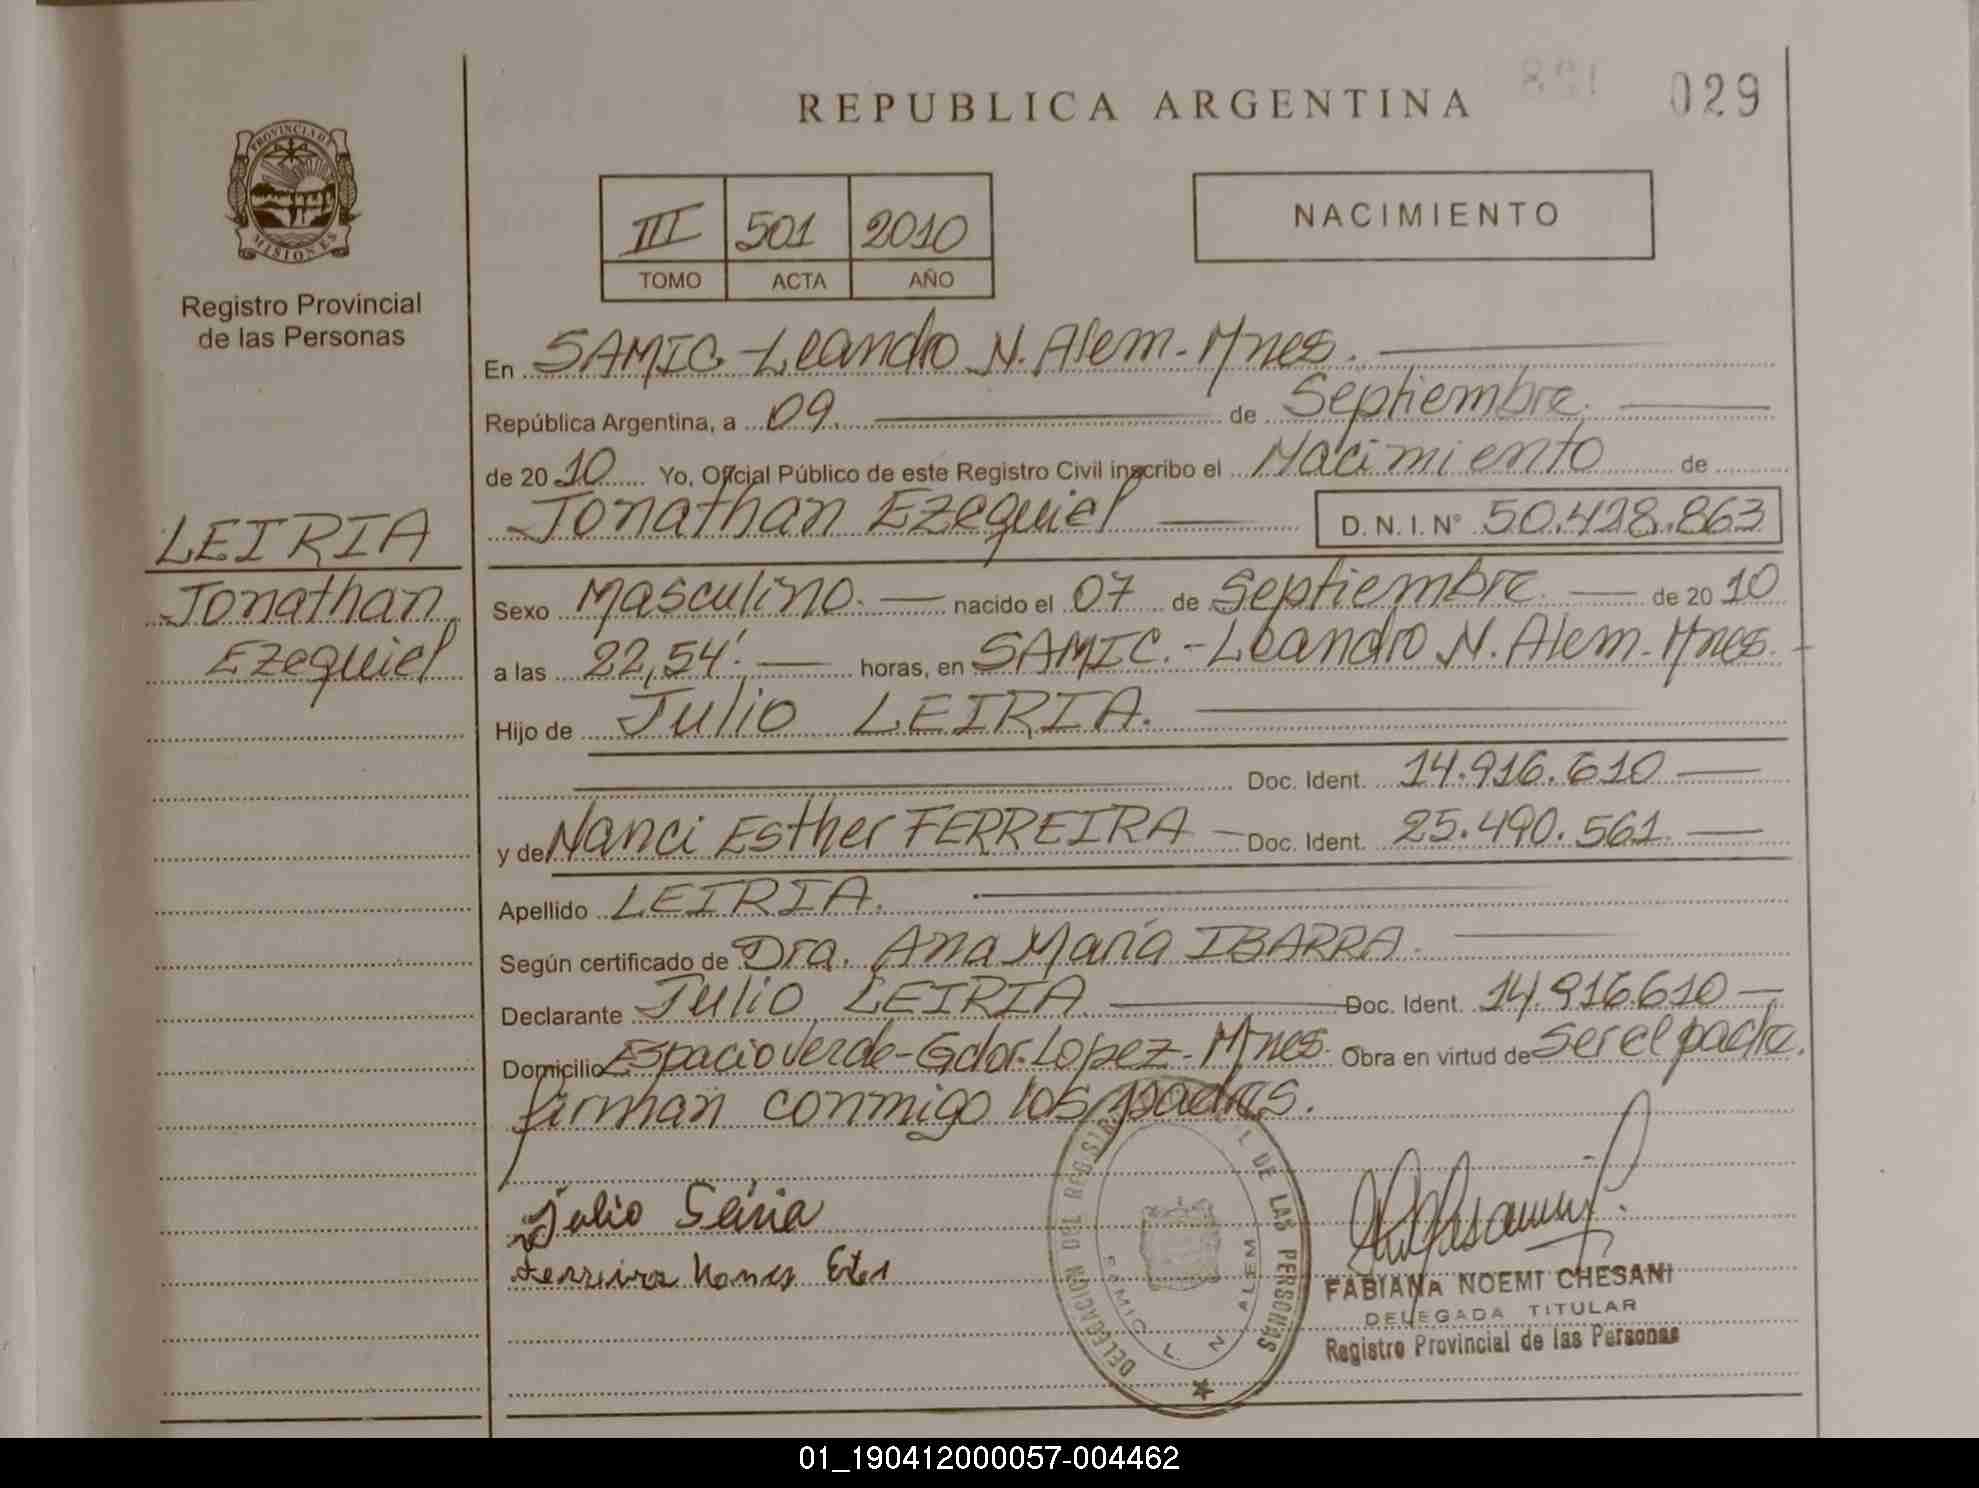 REPUBLICA ARGENTINA
029
PROVINCIA DE
MISIONES
Registro Provincial
de las Personas
III 501 2010
TOMO ACTA AÑO
NACIMIENTO
En SAMIC - Leandro N. Alem - Mnes.
República Argentina, a 09. de Septiembre.
de 20 10 Yo, Oficial Público de este Registro Civil inscribo el Nacimiento de
Jonathan Ezequiel D. N. I. N° 50.428.863
LEIRIA
Jonathan
Ezequiel
Sexo Masculino. nacido el 07 de Septiembre. de 20 10
a las 22,54'. horas, en SAMIC. - Leandro N. Alem - Mnes. -
Hijo de Julio LEIRIA.
Doc. Ident. 14.916.610
y de Nanci Esther FERREIRA - Doc. Ident. 25.490.561.
Apellido LEIRIA.
Según certificado de Dra. Ana María IBARRA.
Declarante Julio LEIRIA Doc. Ident. 14.916.610
Domicilio Espacio Verde - Gdor. Lopez - Mnes. Obra en virtud de ser el padre.
firman conmigo los padres.
Julio Leiria
Ferreira
DELEGACION DEL REGISTRO DE LAS PERSONAS
SAMIC L. N. ALEM
FABIANA NOEMI CHESANI
DELEGADA TITULAR
Registro Provincial de las Personas
01_190412000057-004462